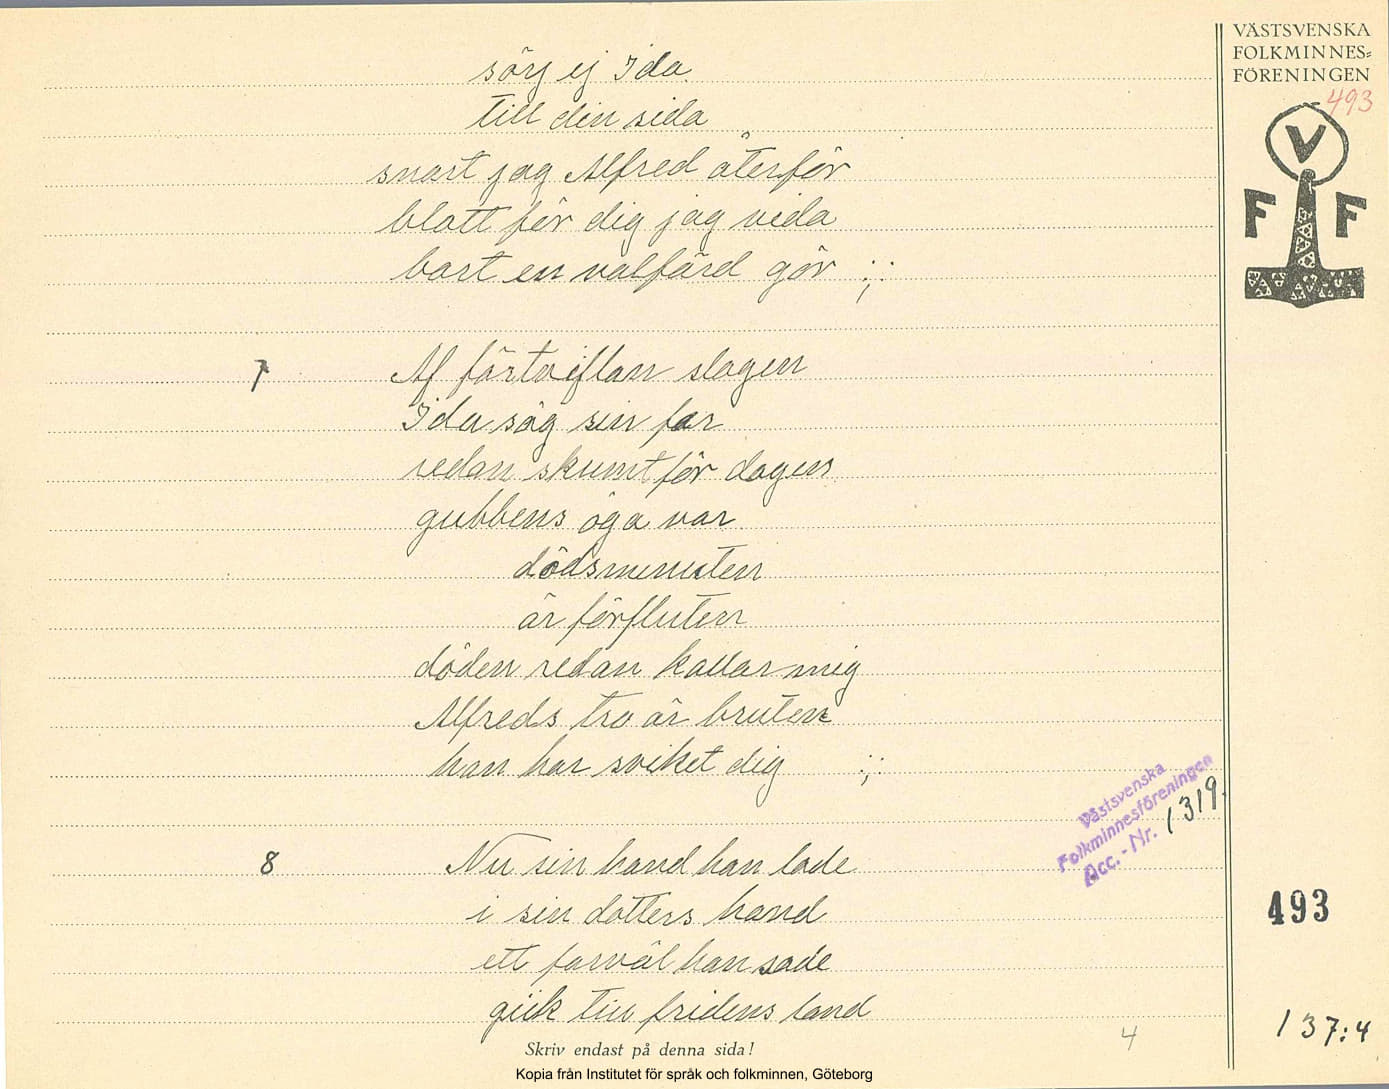 sörj ej Ida
till din sida
snart jag Alfred återför
blott för dig jag vida
bort en valfärd gör :;:
7 Af förtviflan slagen
Ida såg sin far
redan skumt för dagen
gubbens öga var
dödsminuten
är förfluten
döden redan kallar mig
Alfreds tro är bruten
han har sviket dig :;:
8 Nu sin hand han lade
i sin dotters hand
ett farväl han sade
gick till fridens land
Skriv endast på denna sida!
4
Kopia från Institutet för språk och folkminnen, Göteborg
VÄSTSVENSKA
FOLKMINNES=
FÖRENINGEN
493
V
F F
Västsvenska
Folkminnesföreningen
Acc.-Nr. 1319.
493
137:4